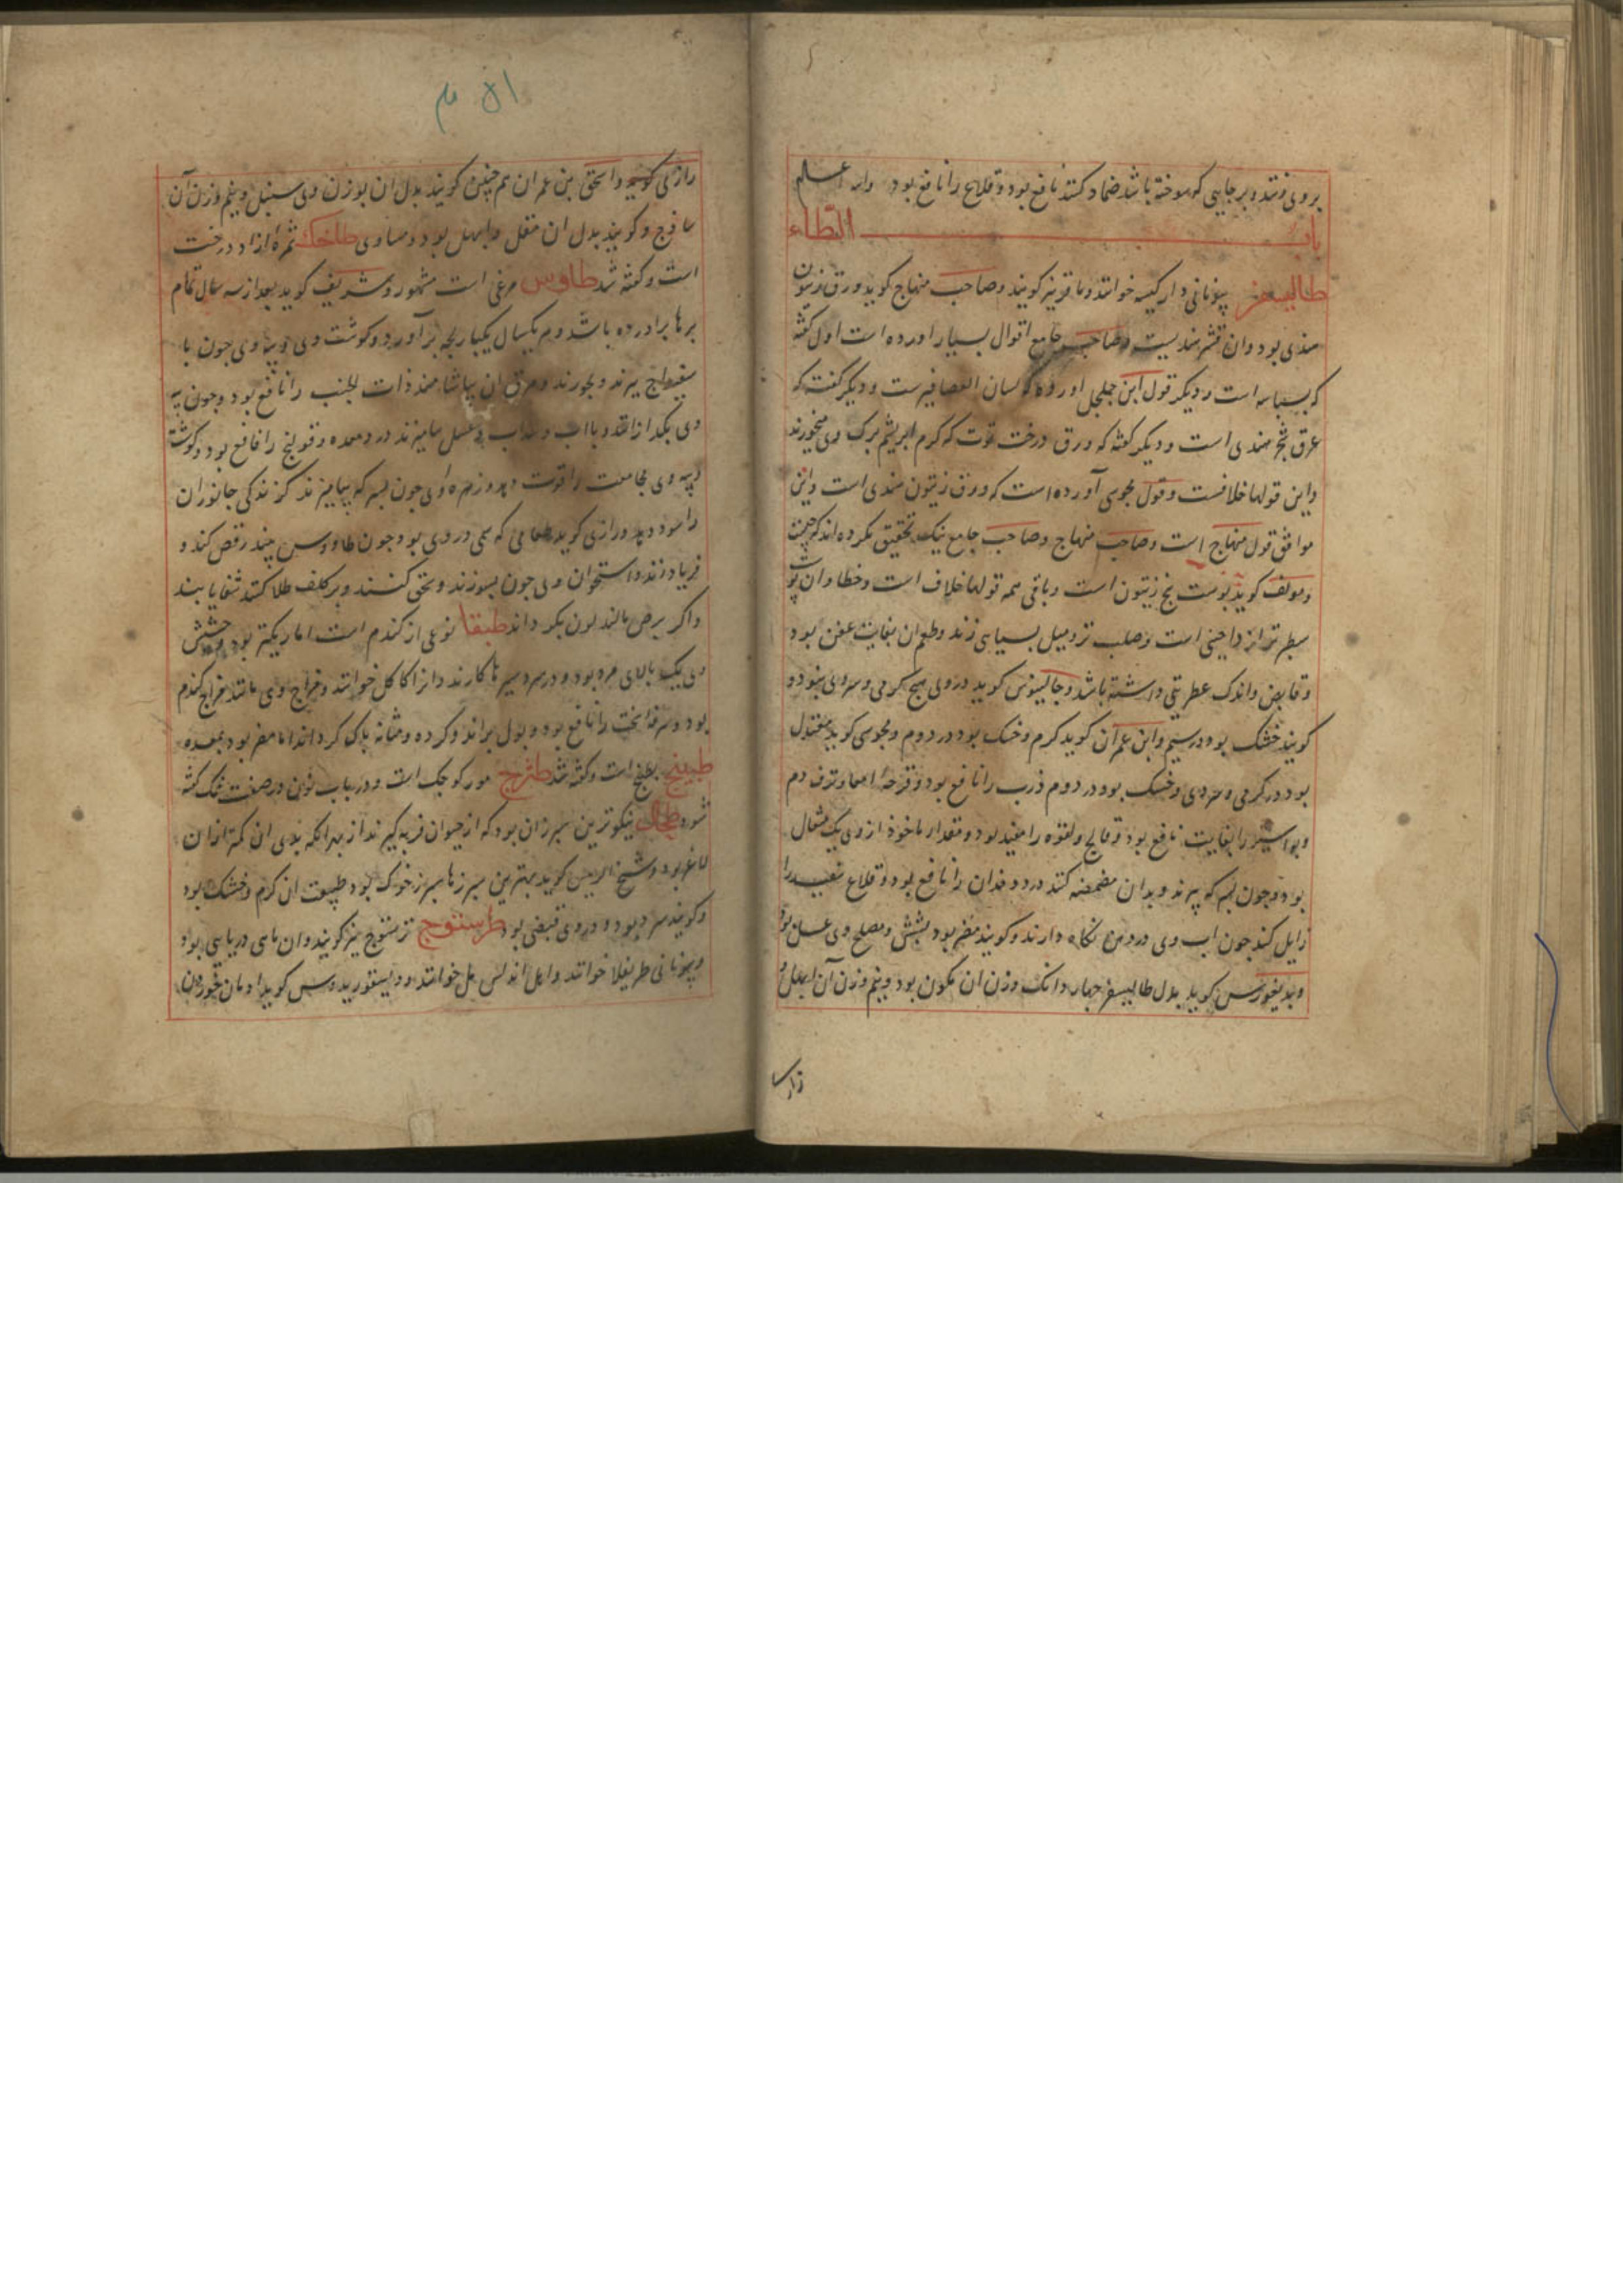 بروی زنند و بر جایی که سوخته باشد ضماد کنند نافع بود و قلاع را نافع بود والله اعلم
باب الطاء
طالیسفر بیونانی دار کیسه خوانند و ماقر نیز کویند و صاحب منهاج کوید ورق زیتون
هندی بود و ان قشر هندیست و صاحب جامع اقوال بسیار اورده است اول کفته
که بسباسه است و دیکر قول ابن جلجل اورده که لسان العصافیرست و دیکر کفته که
عرق شجر هندی است و دیکر کفته که ورق درخت توت که کرم ابریشم برک وی میخورند
و این قولها خلافست و قول مجوسی آورده است که ورق زیتون هندی است و این
موافق قول منهاج است و صاحب منهاج و صاحب جامع نیک تحقیق نکرده اند که چیست
و مولف کوید پوست بیخ زیتون است و باقی همه قولها خلاف است و خطا و ان پوست
سطبرتر از دارچینی است و صلب تر و میل بسیاهی زند و طعم ان بغایت عفن بود
و قابض و اندک عطریتی داشته باشد و جالینوس کوید در وی هیچ کرمی و سردی نبود و
کویند خشک بود در سیم و ابن عمران کوید کرم و خشک بود در دوم و مجوسی کوید معتدل
بود در کرمی و سردی و خشک بود در دوم ذرب را نافع بود و قرحه امعا و نزف دم
و بواسیر را بغایت نافع بود و فالج و لقوه را مفید بود و مقدار ماخوذ از وی یک مثقال
بود و چون بسرکه بپزند و بدان مضمضه کنند درد دندان را نافع بود و قلاع سفید را
زایل کند چون اب وی در دهن نکاه دارند و کویند مضر بود بشش و مصلح وی عسل بود
و بدیغورس کوید بدل طالیسفر چهار دانک وزن ان کمون بود و نیم وزن آن ابهل و
رازی کوید و اسحق بن عمران همچنین کویند بدل ان بوزن وی سنبل و نیم وزن آن
ساذج و کویند بدل ان مقل و ابهل بود و مساوی طاحک ثمره ازاد درخت
است و کفته شد طاوس مرغی است مشهور و شریف کوید بعد از سه سال تمام
برها براورده باشد و هر یکسال یکبار بچه بر آورد و کوشت وی و پیه وی چون با
سفیداج بپزند و بخورند و مرق ان بیاشامند ذات الجنب را نافع بود و چون پیه
وی بکدازانند و با اب سداب و عسل بیامیزند درد معده و قولنج را نافع بود و کوشت
و پیه وی مجامعت را قوت دهد و زهره وی چون بسرکه بیامیزند کزندکی جانوران
را سود دهد و رازی کوید طعامی که سمی در وی بود چون طاووس بیند رقص کند و
فریاد زند و استخوان وی چون بسوزند و سحق کنند و بر کلف طلا کنند شفا یابند
و اکر برص مالند لون بکرداند طبقا نوعی از کندم است اما باریکتر بود و حشیش
وی یک بالای مرد بود و در سردسیرها کارند و انرا کاکل خوانند و مزاج وی مانند مزاج کندم
بود و سرفه سخت را نافع بود و بول براند و کرده و مثانه پاک کرداند اما مضر بود بمعده
طبیخ بطیخ است و کفته شد طثرج مورکوچک است و در باب نون در صفت نمک کفته
شود طحال نیکوترین سپرزان بود که از حیوان فربه کیرند از بهر انکه بدی ان کمتر از ان
لاغر بود و شیخ الرییس کوید بهترین سپرزها سپرز خوک بود طبیعت ان کرم و خشک بود
و کویند سرد بود و در وی قبضی بود طرستوج ترستوج نیز کویند و ان ماهی دریایی بود
و بیونانی طریغلا خوانند و اهل اندلس مل خوانند و دیسقوریدوس کوید ادمان خوردن ان
رازی